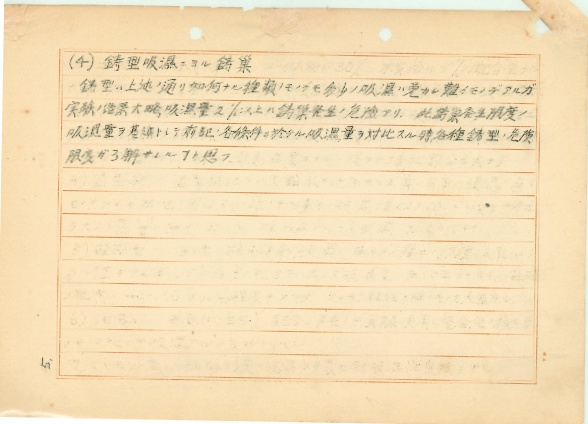 (4) 鋳型吸湿ニヨル鋳巣
鋳型ハ上述ノ通リ如何ナル種類ノモノデモ多少ノ吸湿ハ免カレ難イモノデアルガ
実験ノ結果大略吸湿量2%以上ハ鋳巣発生ノ危険アリ. 此鋳巣発生限度ノ
吸湿量ヲ基準トシテ前記ノ各条件ニ於ケル吸湿量ヲ対比スル時各種鋳型ノ危険
限度ガ了解サレルコトト思フ
5.